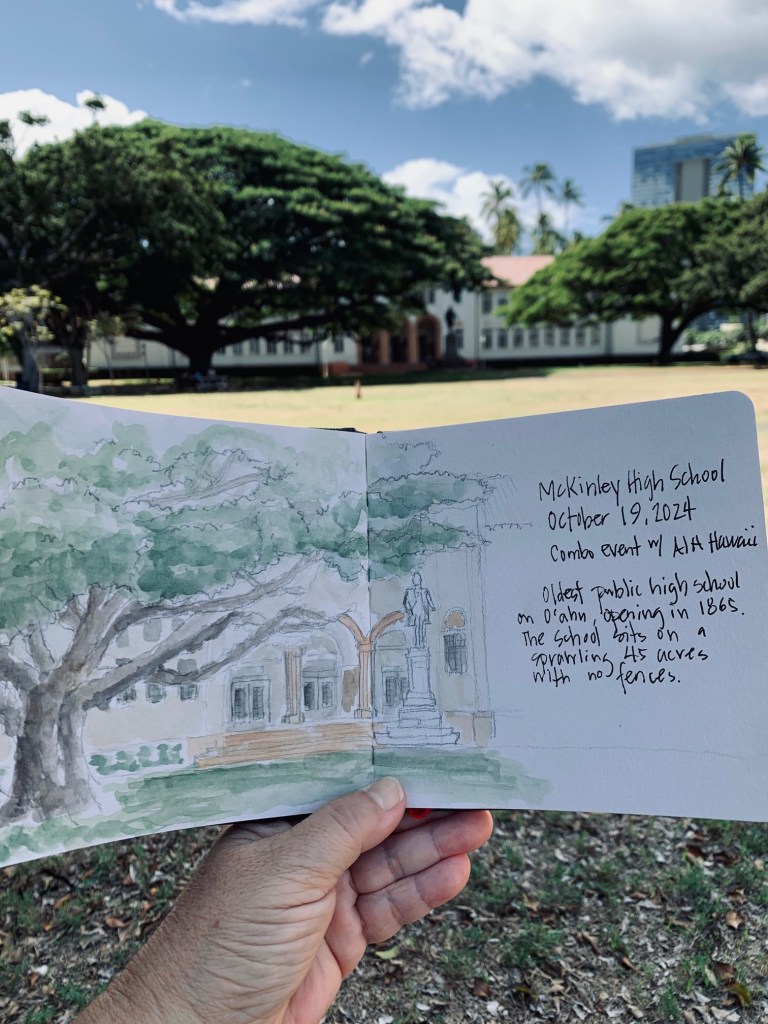 McKinley High School
October 19, 2024
Combo event w/ AIA Hawaii
Oldest public high school
on O'ahu, opening in 1865.
The school sits on a
sprawling 45 acres
with no fences.